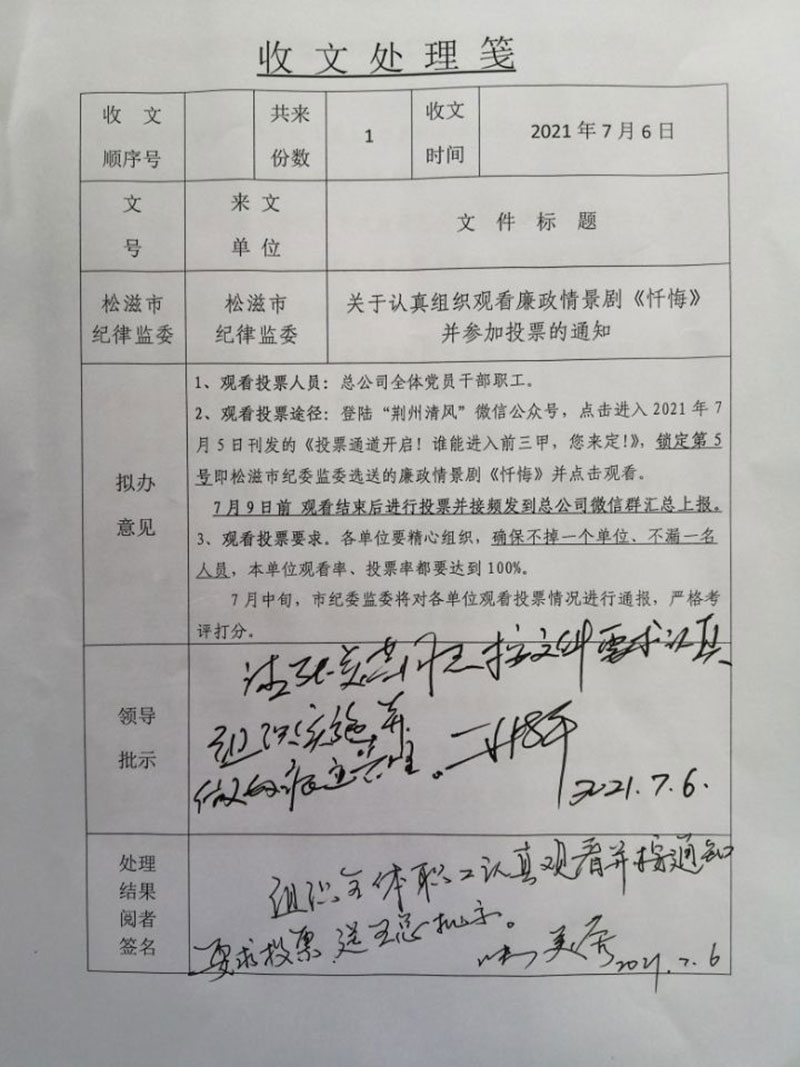 收文处理笺
收 文 共来 收文
顺序号 份数 1 时间 2021年7月6日
文 来 文 文 件 标 题
号 单 位
松滋市 松滋市 关于认真组织观看廉政情景剧《忏悔》
纪律监委 纪律监委 并参加投票的通知
拟办
意见
1、观看投票人员：总公司全体党员干部职工。
2、观看投票途径：登陆“荆州清风”微信公众号，点击进入2021年7
月5日刊发的《投票通道开启！谁能进入前三甲，您来定！》，锁定第5
号即松滋市纪委监委选送的廉政情景剧《忏悔》并点击观看。
7月9日前 观看结束后进行投票并接频发到总公司微信群汇总上报。
3、观看投票要求。各单位要精心组织，确保不掉一个单位、不漏一名
人员，本单位观看率、投票率都要达到100%。
7月中旬，市纪委监委将对各单位观看投票情况进行通报，严格考
评打分。
领导
批示
同志按文件要求认真
组织实施并
做好
2021.7.6.
处理
结果
阅者
签名
组织全体职工认真观看并按通知
要求投票 送王总批示。
2021.7.6